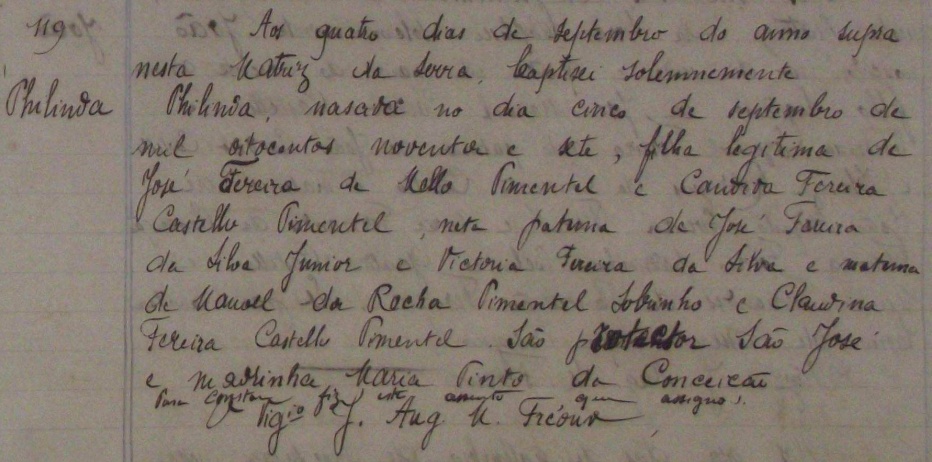 119
Aos quatro dias de septembro do anno supra
nesta Matriz da Serra, baptisei solemnemente
Philinda
Philinda, nascida no dia cinco de septembro de
mil oitocentos noventa e sete, filha legitima de
José Fereira de Mello Pimentel e Candida Fereira
Castello Pimentel, neta paterna de José Fareira
da Silva Junior e Victoria Fereira da Silva e materna
de Manoel da Rocha Pimentel Sobrinho e Claudina
Fereira Castello Pimentel São protector São José
e madrinha Maria Pinto da Conceição
Para constar fiz este assento que assigno.
Vigio J. Aug M.